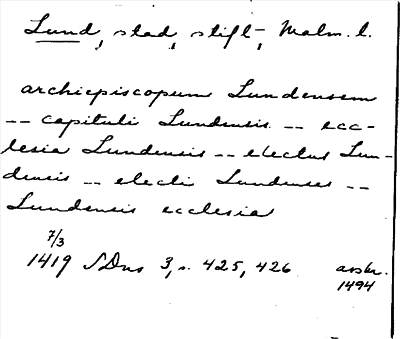 Lund, stad, stift-, Malm. l.
archiepiscopum Lundensem
-- capituli Lundensis -- ecc-
lesia Lundensis -- electus Lun-
densis -- electi Lundenses --
Lundensis ecclesia
7/3
1419 SDns 3, s. 425, 426 avskr.
1494